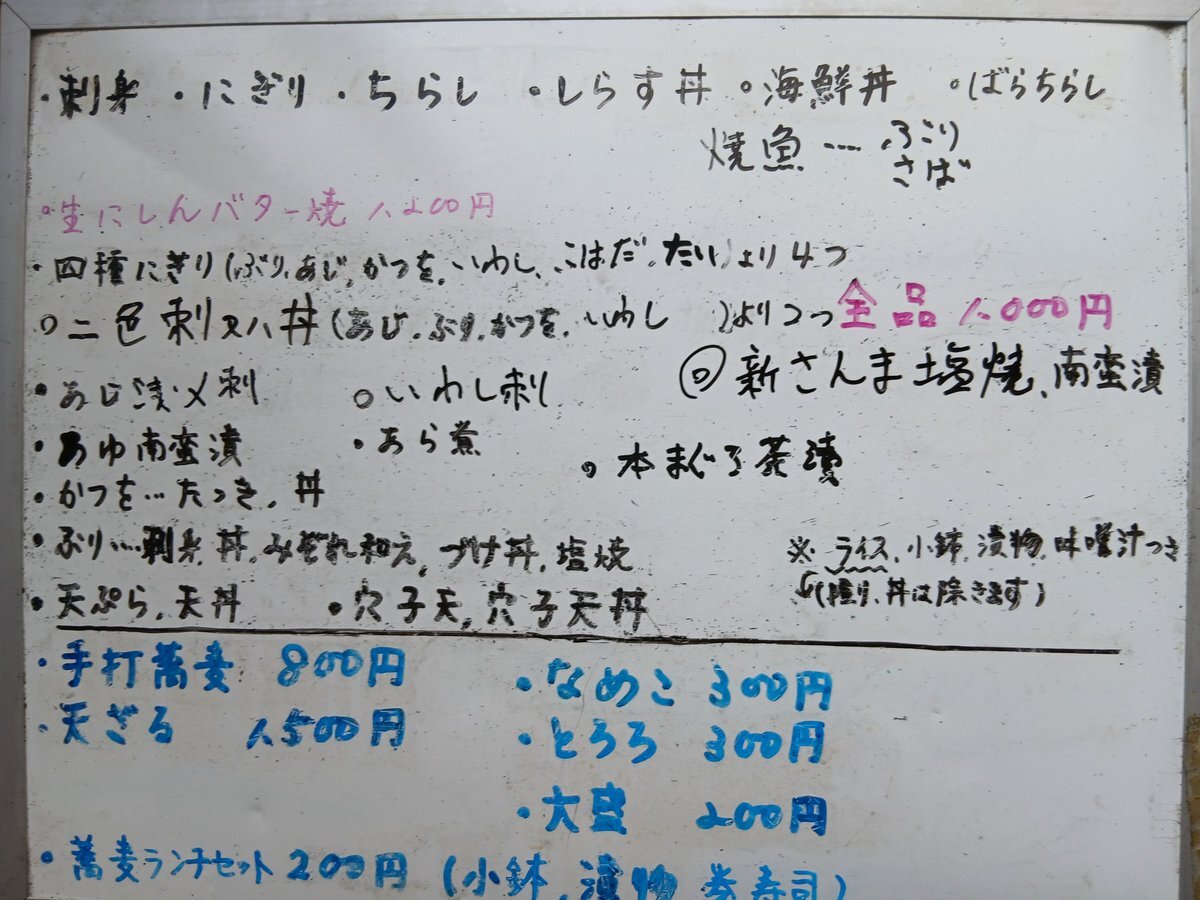 ・刺身 ・にぎり ・ちらし ・しらす丼 ・海鮮丼 ・ばらちらし
焼魚…ぶり
さば
・生にしんバター焼 1.200円
・四種にぎり(ぶり、あじ、かつを、いわし、こはだ、たい)より4つ
・二色刺又ハ丼(あじ、ぶり、かつを、いわし )より2つ 全品 1.000円
・あじ漬〆刺 ・いわし刺 ◎新さんま塩焼、南蛮漬
・あゆ南蛮漬 ・あら煮 ・本まぐろ茶漬
・かつを…たつき、丼
・ぶり…刺身、丼、みぞれ和え、づけ丼、塩焼 ※ライス、小鉢、漬物、味噌汁つき
・天ぷら、天丼 ・穴子天、穴子天丼 (握り、丼は除きます)
・手打蕎麦 800円 ・なめこ 300円
・天ざる 1.500円 ・とろろ 300円
・大盛 200円
・蕎麦ランチセット 200円 (小鉢、漬物 巻寿司)